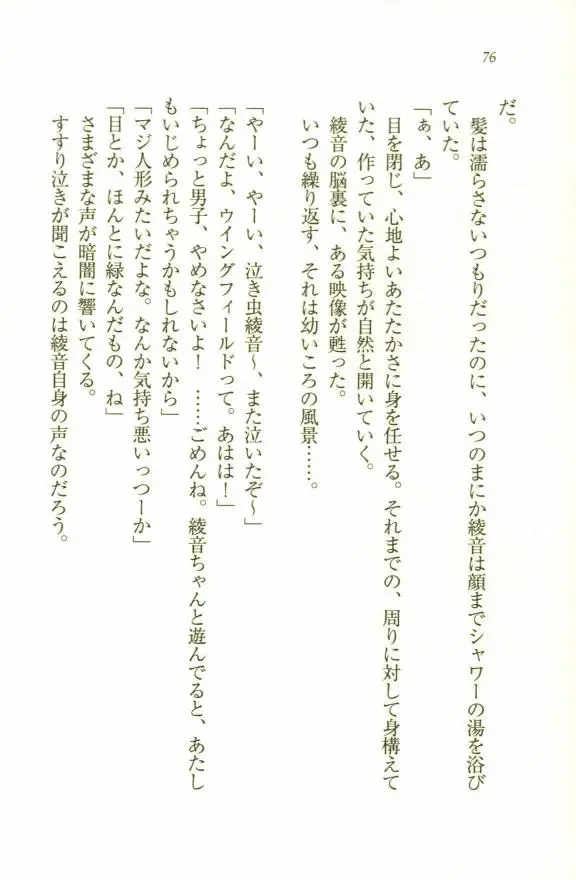 76
だ。
　髪は濡らさないつもりだったのに、いつのまにか綾音は顔までシャワーの湯を浴び
ていた。
「ぁ、あ」
　目を閉じ、心地よいあたたかさに身を任せる。それまでの、周りに対して身構えて
いた、作っていた気持ちが自然と開いていく。
　綾音の脳裏に、ある映像が甦った。
　いつも繰り返す、それは幼いころの風景……。
「やーい、やーい、泣き虫綾音～、また泣いたぞ～」
「なんだよ、ウイングフィールドって。あはは！」
「ちょっと男子、やめなさいよ！　……ごめんね。綾音ちゃんと遊んでると、あたし
もいじめられちゃうかもしれないから」
「マジ人形みたいだよな。なんか気持ち悪いっつーか」
「目とか、ほんとに緑なんだもの、ね」
　さまざまな声が暗闇に響いてくる。
　すすり泣きが聞こえるのは綾音自身の声なのだろう。